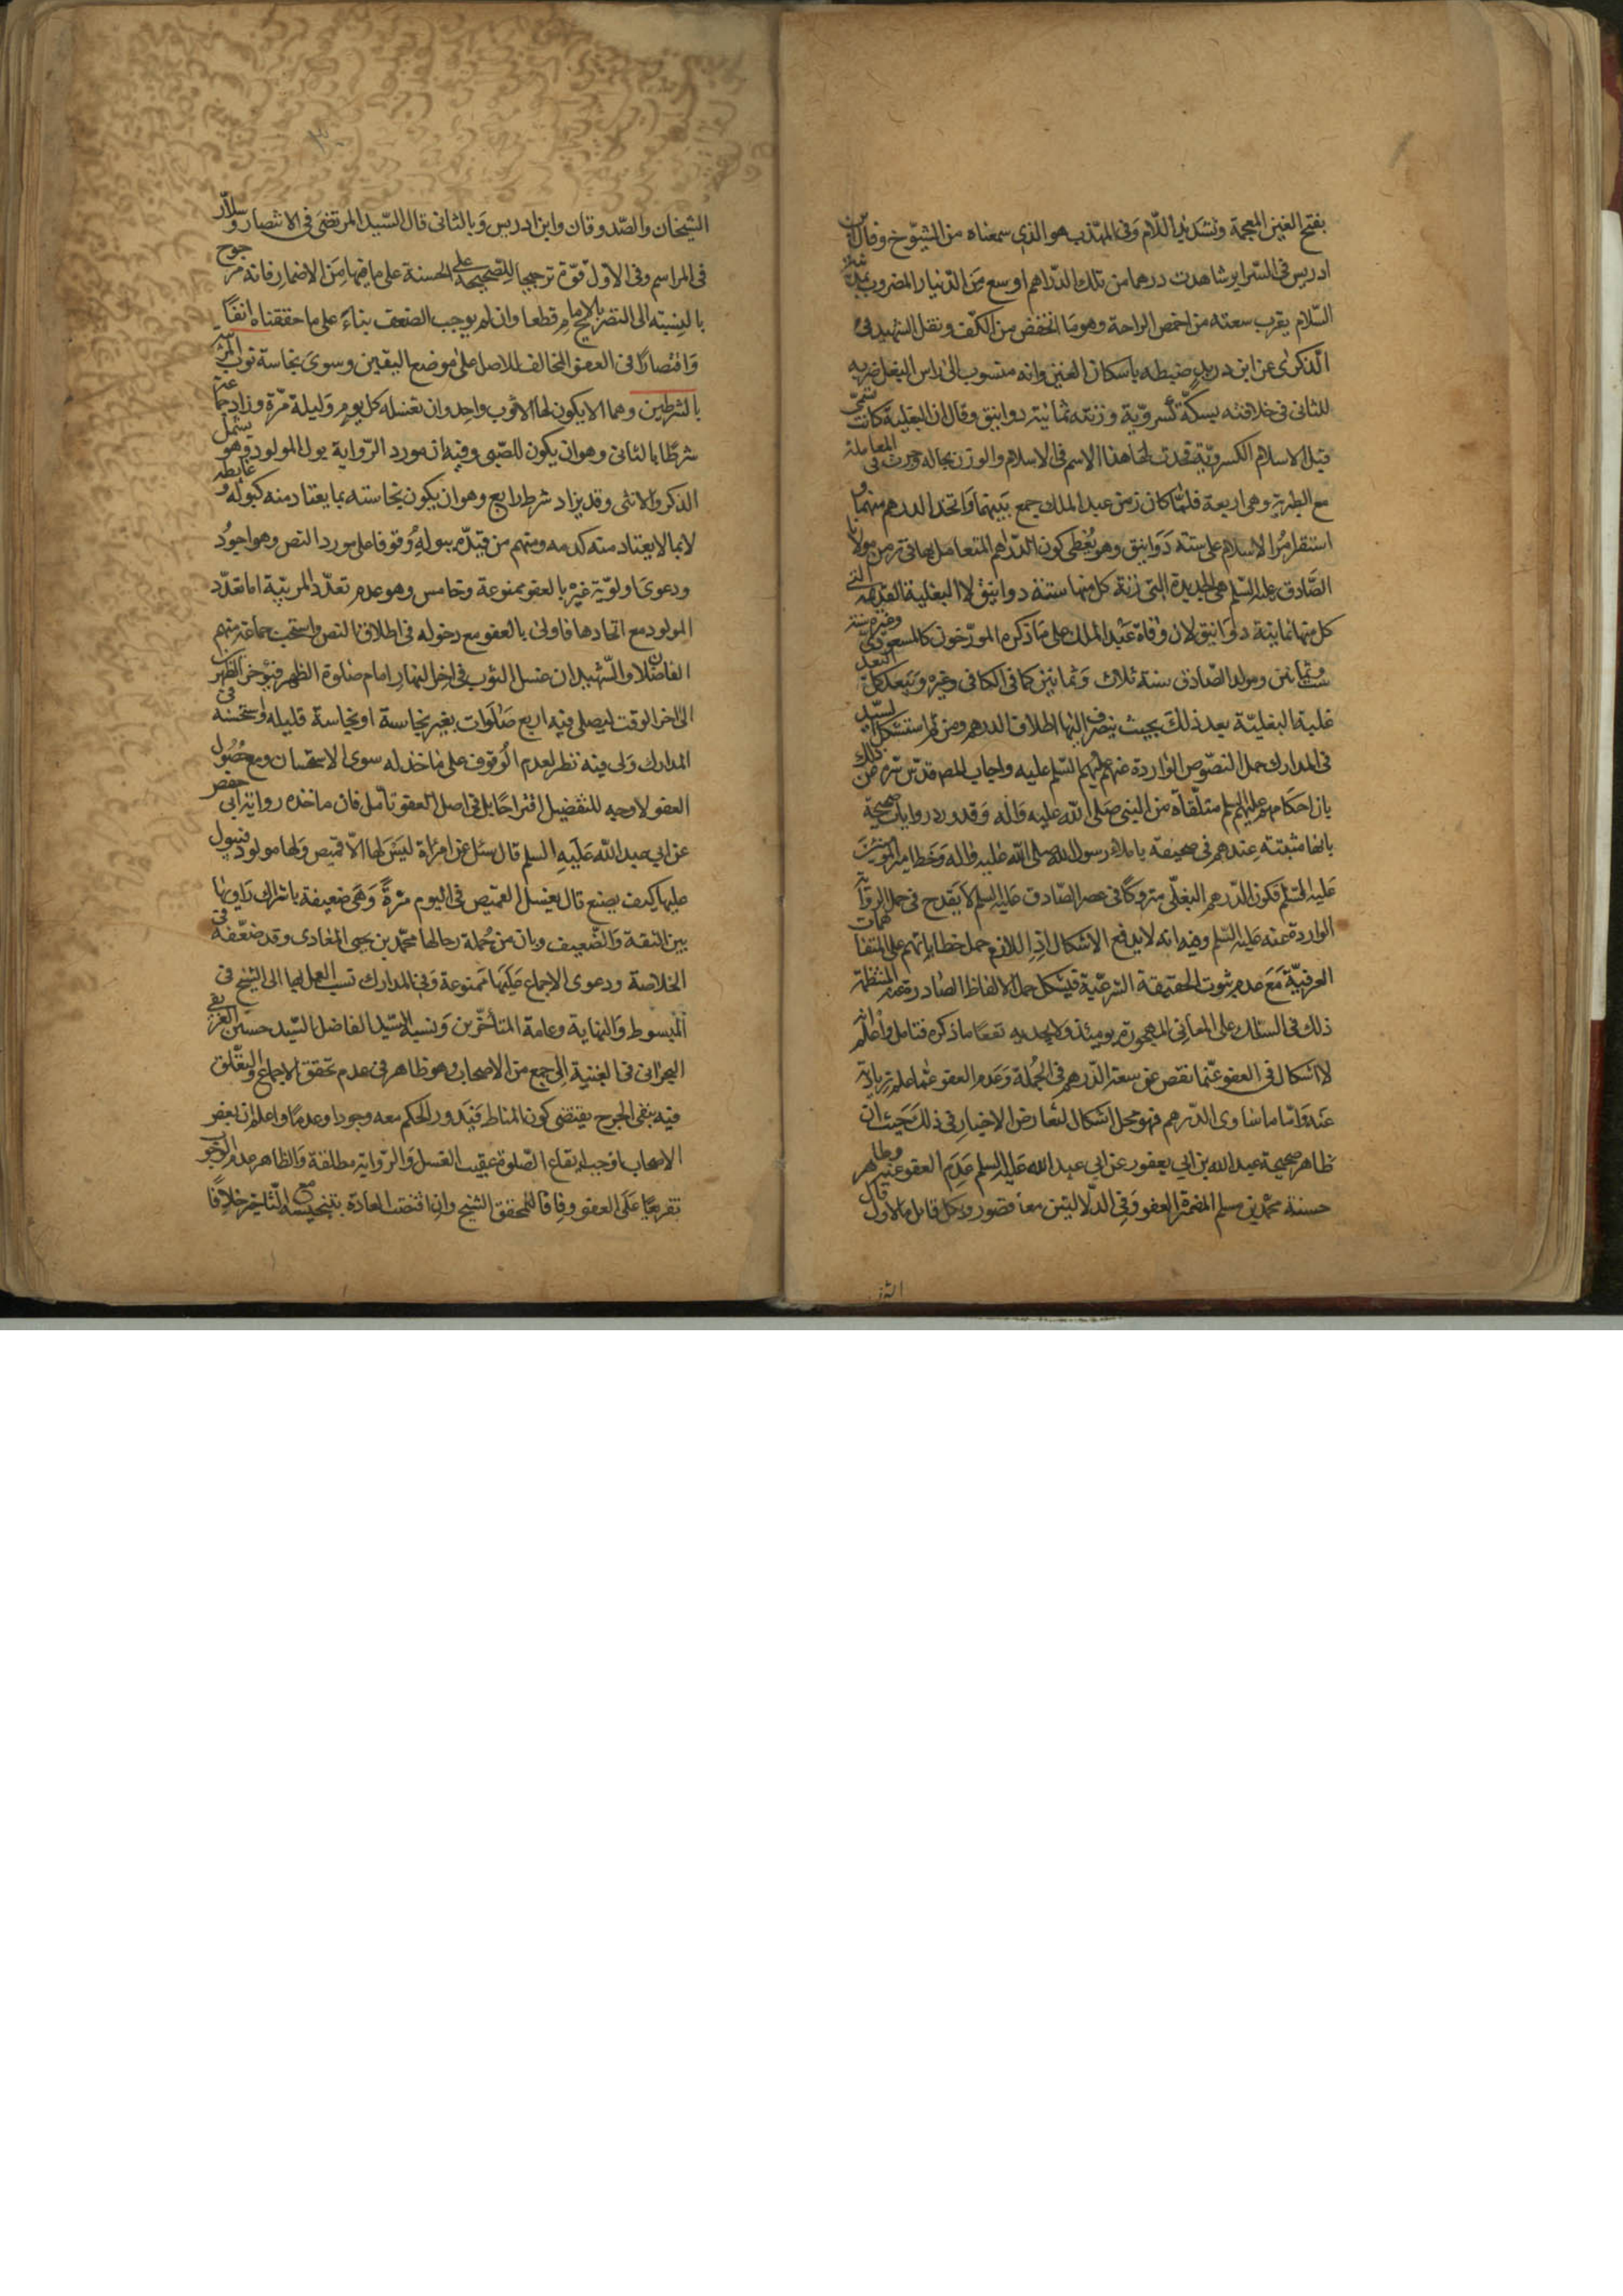 بفتح الغين المعجمة وتشديد اللّام وفى المهذب هو الذى سمعناه من الشيوخ وقال ابن
ادريس فى السّراير شاهدت درهما من تلك الدّراهم اوسع من الدّينار المضروب بمدينة
السّلام يقرب سعته من اخمص الراحة وهو ما انخفض من الكّف ونقل الشهيد فى
الذكرى عن ابن دريد ضبطه باسكان الغين وانه منسوب الى راس البغل ضربه
للثانى فى خلافته بسكّة كسرويّة وزنته ثمانية دوانيق وقال ان البغلية كانت تسمّى
قبل الاسلام الكسرويّة فحدث لها هذا الاسم فى الاسلام والوزن بحاله وجرت فى المعاملة
مع الطبرية وهى اربعة فلمّا كان زمن عبد الملك جمع بينهما واتخذ الدرهم منهما و
استقر امر الاسلام على ستة دوانيق وهو يعطى كون الدّراهم المتعامل بها فى زمن مولانا
الصّادق عليه السّلم هى الجديدة التى زنة كل منها ستة دوانيق لا البغلية القديمة التى
كل منها ثمانية دوانيق لان وفاة عبد الملك على ما ذكره المورّخون كالمسعودى وغيره سنة
ست وثمانين ومولد الصّادق سنة ثلاث وثمانين كما فى الكافى وغيره ويبعد كل البعد
غلبة البغليّة بعد ذلك بحيث ينصرف اليها اطلاق الدرهم ومن ثم استشكل السّيد
فى المدارك حمل النصّوص الواردة عنهم عليهم السّلم عليه واجاب المص قدّس سّره عن ذلك
بان احكامهم عليهم السلم متلّقاة من النبى صلى الله عليه وآله وقد ورد روايات صحيحة
بانها مثبتة عندهم فى صحيفة باملاء رسول الله صلى الله عليه وآله وخط امير المؤمنين
عليه السّلم فكون الدّرهم البغلّى متروكًا فى عصر الصّادق عليه السلم لا يقدح فى حمل الرواية
الواردة عنه عليه السّلم وفيه انه لا يدفع الاشكال اذ اللازم حمل خطاباتهم على المتفاهمات
العرفيّة مع عدم ثبوت الحقيقة الشرعّية فيشكل حمل الالفاظ الصّادرة عنهم المنتظمة
ذلك فى السلك على المعانى المهجورة يومئذ ولا يجديه نفعًا ما ذكره فتامل واعلم انه
لا اشكال فى العفو عمّا نقص عن سعة الدّرهم فى الجملة وعدم العفو عمّا علم زيادته
عنه وامّا ما ساوى الدّرهم فهو محل اشكال لتعارض الاخبار فى ذلك حيث ان
ظاهر صحيحة عبد الله بن ابى يعفور عن ابى عبد الله عليه السلم عدم العفو عنه وظاهر
حسنة محمّد بن مسلم المضمرة العفو وفى الدّلالتين معا قصور وبكل قايل فبالاول قال
الشيخان والصّدوقان وابن ادريس وبالثانى قال السّيد المرتضى فى الانتصار وسلاّر
فى المراسم وفى الاوّل قوّة ترجيحا للصّحيحة على الحسنة على ما فيها من الاضمار فانه مرجوح
بالنسبة الى التصريح بالامام قطعا وان لم يوجب الضعف بناء على ما حققناه انفًا
واقتصارًا فى العفو المخالف للاصل على موضع اليقين وسوى نجاسة ثوب المربّية
بالشرطين وهما الا يكون لها الا ثوب واحد وان تغسله كل يوم وليلة مّرة وزاد جماعة
شرطًا ثالثا وهو ان يكون للصّبى وفيه ان مورد الرّواية بول المولود وهو يشمل
الذكر والانثى وقد يزاد شرط رابع وهو ان يكون نجاسته بما يعتاد منه كبوله وغايطه
لا بما لا يعتاد منه كدمه ومنهم من قيدّه ببوله وقوفا على مورد النص وهو اجود
ودعوى اولويّة غيره بالعفو ممنوعة وخامس وهو عدم تعدّد المربّية اما تعدّد
المولود مع اتحادها فاولى بالعفو مع دخوله فى اطلاق النص واستحب جماعة منهم
الفاضلان والشّهيد ان غسل الثوب فى اخر النهار امام صلوة الظهر فيؤخر الظهرين
الى اخر الوقت ليصلى فيه اربع صلوات بغير نجاسة او نجاسة قليله واستحسنه فى
المدارك ولى فيه نظر لعدم الوقوف على ماخذ له سوى الاستحسان ومع حصول
العفو لا وجه للتفضيل اقتراحًا بل فى اصل العفو تأمل فان ماخذه رواية ابى حفص
عن ابى عبد الله عليه السلم قال سئل عن امرأة ليس لها الّا قميص ولها مولود فيبول
عليها كيف يصنع قال يغسل القميص فى اليوم مّرة وهى ضعيفة باشتراك راويها
بين الثقة والضّعيف وبان من جملة رجالها محمّد بن يحيى المعاذى وقد ضعّفه فى
الخلاصة ودعوى الاجماع عليها ممنوعة وفى المدارك نسب العمل بها الى الشّيخ فى
المبسوط والنهاية وعامة المتأخّرين ونسبه السّيد الفاضل السّيد حسين الغريفى
البحرانى فى الغنية الى جمع من الاصحاب وهو ظاهر فى عدم تحقق الاجماع والتعّلق
فيه بنفى الحرج يقتضى كون المناط فيدور الحكم معه وجودا وعدمًا واعلم ان بعض
الاصحاب اوجب ايقاع الصّلوة عقيب الغسل والرّواية مطلقة والظاهر عدم الوجوب
تفريعًا على العفو وفاقا للمحقق الشيخ وان اقتضت العادة بتنجيسه مع التّاخير خلافًا